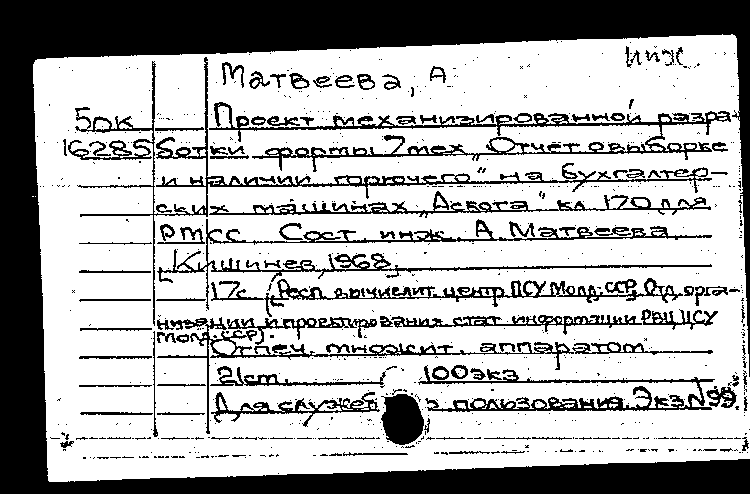 инж.
Матвеева, А
5рк Проект механизированной разра-
16285 ботки формы 7 мех „Отчет о выборке
и наличии горючего" на бухгалтер-
ских машинах „Аскота" кл 170 для
РТСС. Сост. инж. А. Матвеева.
Кишинев, 1968.
17с. (Респ. вычислит. центр ЦСУ Молд. ССР. Отд. орга-
низации и проектирования стат информации РВЦ ЦСУ
Молд. ССР).
Отпеч. множит. аппаратом.
21cm. 100 экз.
Для пользования. Экз N 99